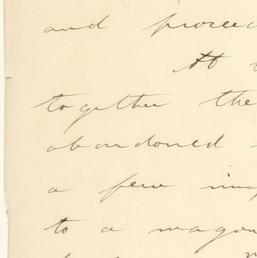 and proceed
At
together the
abandoned
a few
to a wagon